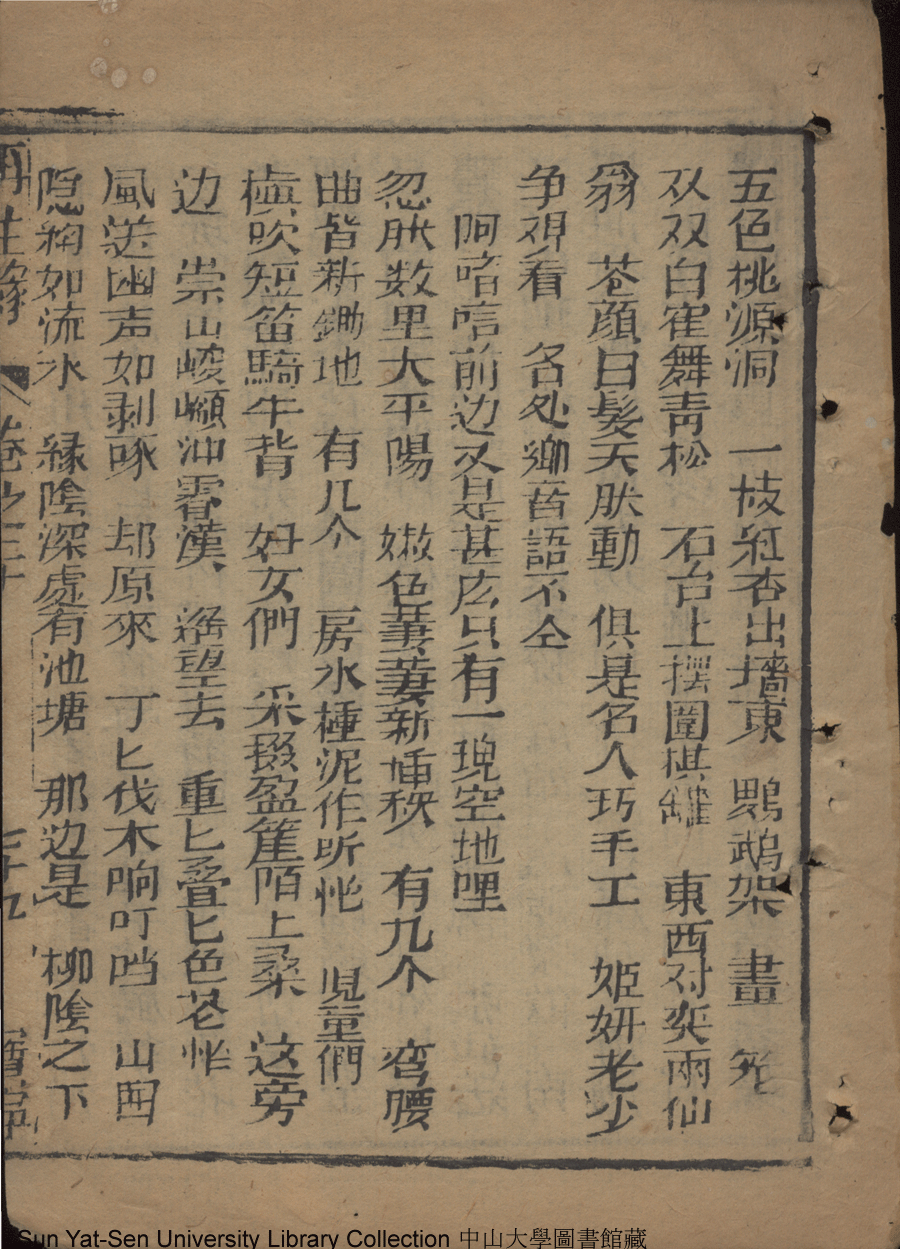 五色桃源洞　一枝紅杏出墻東　鸚鵡架　畫
双双白雀舞青松　石台上摆圍棋　東西对奕兩仙
翁　苍顔白髮天肰動　俱是名人巧手工　姬妍老少
争覌看　名处鄉音語不仝
阿唷唷前边又是甚広只有一塊空地哩
忽肰数里大平陽　嫩色萋萋新插秧　有几个　弯腰
曲背新鋤地　有几个　房水種泥作所忙　児童們
橫吹短笛騎牛背　妇女們　采掇盈筐陌上桑　这旁
边　崇山峻嶺冲霄漢　遥望去　重匕叠匕色苍
風送幽声如剥啄　却原來　丁匕伐木响叮当　山田
隐如流水　緑陰深處有池塘　那边是　柳陰之下
再生緣　卷之三十　三十九
Sun Yat-Sen University Library Collection 中山大學圖書館藏